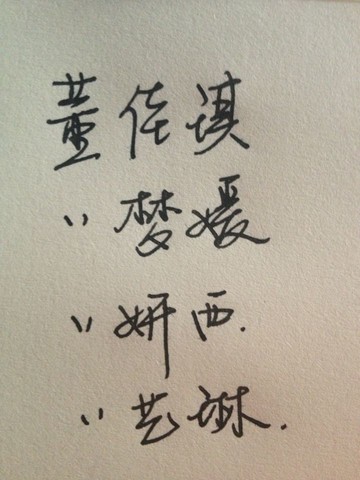 董佳琪
〃梦媛
〃妍西.
〃艺琳.